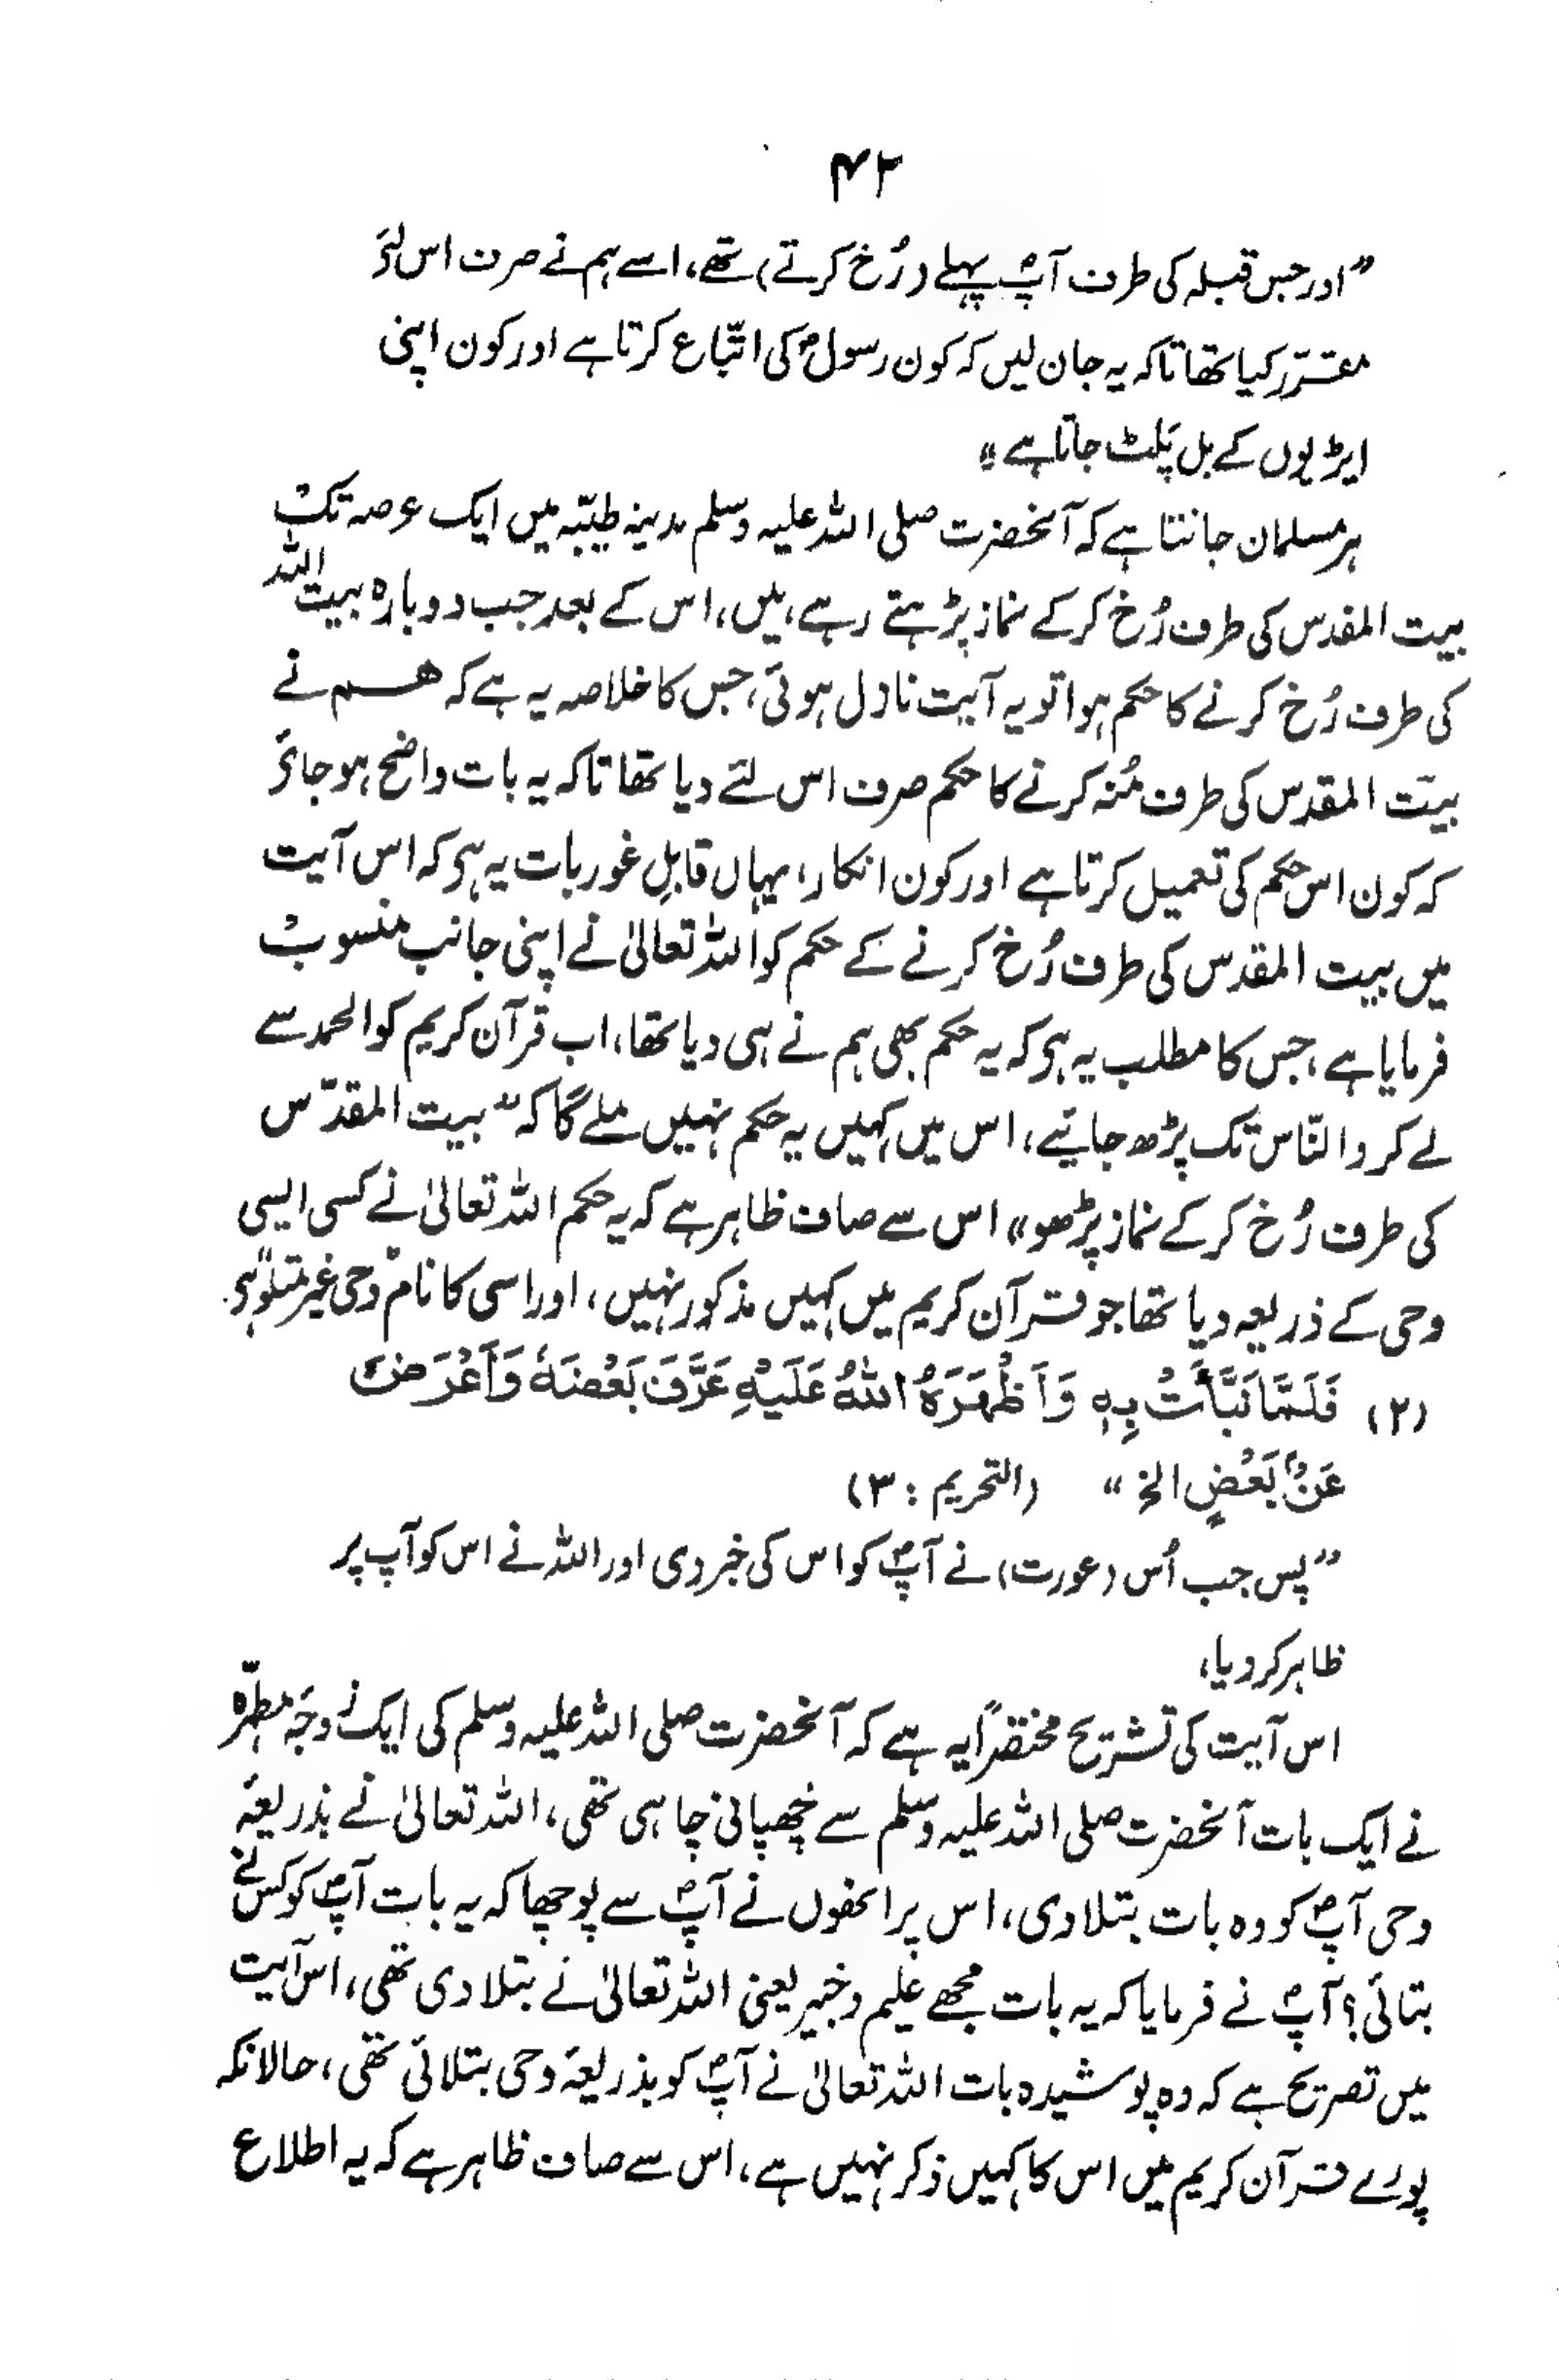 ۴۲
”اور جس قبلہ کی طرف آپؐ پہلے (رُخ کرتے) تھے، اسے ہم نے صرف اس لئے
مقرّر کیا تھا تاکہ یہ جان لیں کہ کون رسولؐ کی اتّباع کرتا ہے اور کون اپنی
ایڑیوں کے بل پَلٹ جاتا ہے“
ہر مسلمان جانتا ہے کہ آنحضرت صلی اللہ علیہ وسلم مدینہ طیّبہ میں ایک عرصہ تک
بیت المقدس کی طرف رُخ کر کے نماز پڑہتے رہے ہیں، اس کے بعد جب دوبارہ بیت اللہ
کی طرف رُخ کرنے کا حکم ہوا تو یہ آیت نازل ہوئی، جس کا خلاصہ یہ ہے کہ ہم نے
بیت المقدس کی طرف مُنہ کرنے کا حکم صرف اس لئے دیا تھا تاکہ یہ بات واضح ہوجائے
کہ کون اس حکم کی تعمیل کرتا ہے اور کون انکار، یہاں قابلِ غور بات یہ ہی کہ اس آیت
میں بیت المقدس کی طرف رُخ کرنے کے حکم کو اللہ تعالیٰ نے اپنی جانب منسوب
فرمایا ہے، جس کا مطلب یہ ہی کہ یہ حکم بھی ہم نے ہی دیا تھا، اب قرآن کریم کو الحمد سے
لے کر والنّاس تک پڑھ جائیے، اس میں کہیں یہ حکم نہیں ملے گا کہ ”بیت المقدّس
کی طرف رُخ کر کے نماز پڑھو“ اس سے صاف ظاہر ہے کہ یہ حکم اللہ تعالیٰ نے کسی ایسی
وحی کے ذریعہ دیا تھا جو قرآن کریم میں کہیں مذکور نہیں، اور اسی کا نام ”وحی غیر متلو“ ہی
(۲) فَلَمَّا نَبَّأَتْ بِهٖ وَاَظْهَرَهُ اللهُ عَلَيْهِ عَرَّفَ بَعْضَهٗ وَاَعْرَضَ
عَنْۢ بَعْضٍ الخ“ (التحریم : ۳)
”پس جب اُس (عورت) نے آپؐ کو اس کی خبر دی اور اللہ نے اس کو آپ پر
ظاہر کر دیا،
اس آیت کی تشریح مختصراً یہ ہے کہ آنحضرت صلی اللہ علیہ وسلم کی ایک زوجۂ مطہّرہ
نے ایک بات آنحضرت صلی اللہ علیہ وسلم سے چُھپانی چاہی تھی، اللہ تعالیٰ نے بذریعۂ
وحی آپؐ کو وہ بات بتلا دی، اس پر انھوں نے آپؐ سے پوچھا کہ یہ بات آپؐ کو کس نے
بتائی؟ آپؐ نے فرمایا کہ یہ بات مجھے علیم و خبیر یعنی اللہ تعالیٰ نے بتلا دی تھی، اس آیت
میں تصریح ہے کہ وہ پوشیدہ بات اللہ تعالیٰ نے آپؐ کو بذریعۂ وحی بتلائی تھی، حالانکہ
پورے قرآن کریم میں اس کا کہیں ذکر نہیں ہے، اس سے صاف ظاہر ہے کہ یہ اطلاع